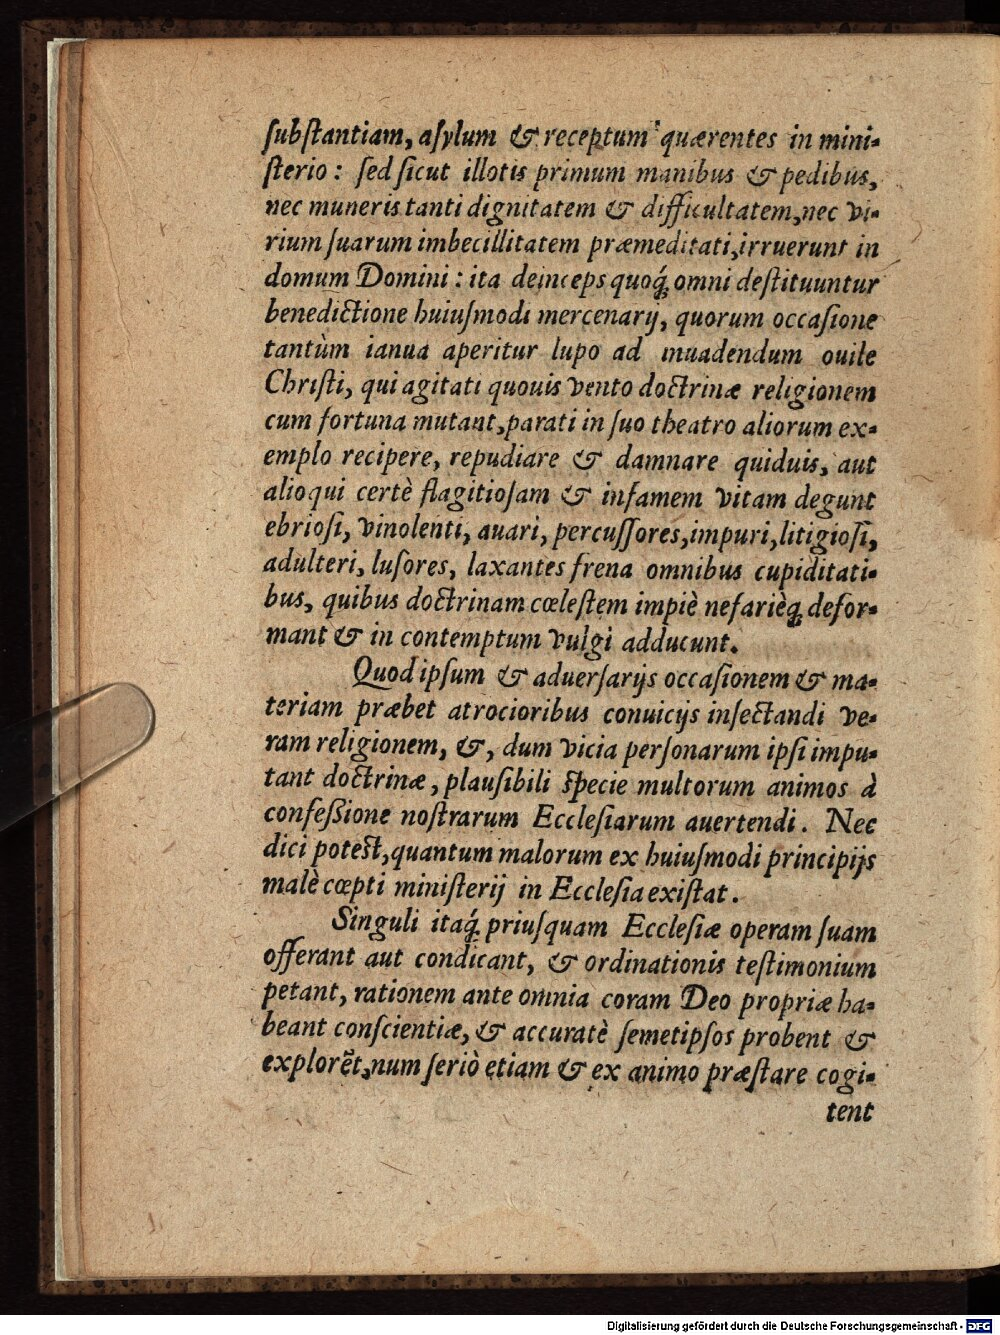 ſubſtantiam, aſylum & receptum quærentes in mini-
ſterio: ſed ſicut illotis primum manibus & pedibus,
nec muneris tanti dignitatem & difficultatem, nec vi-
rium ſuarum imbecillitatem præmeditati, irruerunt in
domum Domini: ita deinceps quoq́; omni deſtituuntur
benedictione huiuſmodi mercenarij, quorum occaſione
tantùm ianua aperitur lupo ad inuadendum ouile
Chriſti, qui agitati quouis vento doctrinæ religionem
cum fortuna mutant, parati in ſuo theatro aliorum ex-
emplo recipere, repudiare & damnare quiduis, aut
alioqui certè flagitioſam & infamem vitam degunt
ebrioſi, vinolenti, auari, percuſſores, impuri, litigioſi,
adulteri, luſores, laxantes frena omnibus cupiditati-
bus, quibus doctrinam cœleſtem impiè nefarièq; defor-
mant & in contemptum vulgi adducunt.
Quod ipſum & aduerſarijs occaſionem & ma-
teriam præbet atrocioribus conuicijs inſectandi ve-
ram religionem, &, dum vicia perſonarum ipſi impu-
tant doctrinæ, plauſibili ſpecie multorum animos à
confeßione noſtrarum Eccleſiarum auertendi. Nec
dici poteſt, quantum malorum ex huiuſmodi principijs
malè cœpti miniſterij in Eccleſia exiſtat.
Singuli itaq́; priuſquam Eccleſiæ operam ſuam
offerant aut condicant, & ordinationis teſtimonium
petant, rationem ante omnia coram Deo propriæ ha-
beant conſcientiæ, & accuratè ſemetipſos probent &
explorẽt, num ſeriò etiam & ex animo præſtare cogi-
tent
Digitalisierung gefördert durch die Deutsche Forschungsgemeinschaft - DFG